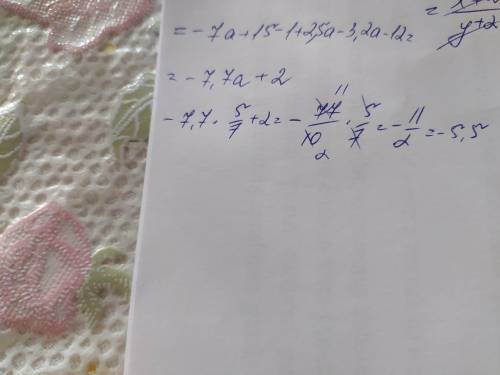 = -7a+15-1+2,5a-3,2a-12=
= -7,7a+2
-7,7·5/7+2= -77/10·5/7= -11/2= -5,5
=
y+2